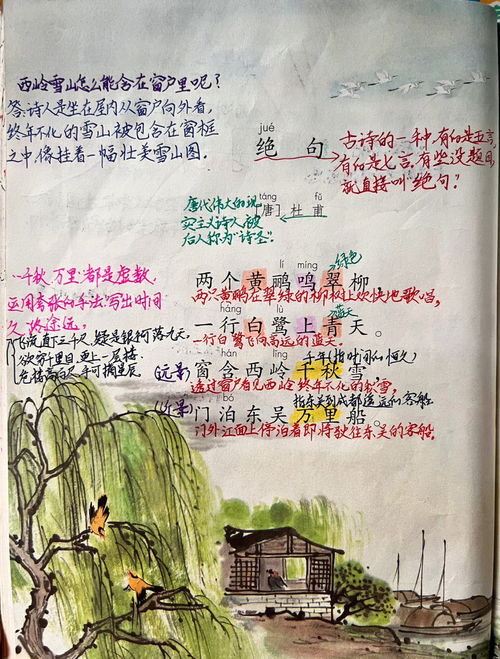 西岭雪山怎么能含在窗户里呢？
答：诗人是坐在屋内从窗户向外看，
终年不化的雪山被包含在窗框
之中像挂着一幅壮美雪山图。
jué
绝句
古诗的一种,有的是五言,
有的是七言.有些没题目,
就直接叫"绝句".
táng fǔ
[唐]杜甫
唐代伟大的现
实主义诗人被
后人称为"诗圣".
千秋、万里都是虚数,
运用夸张的手法写出时间
久、路途远,
飞流直下三千尺,疑是银河落九天.
欲穷千里目,更上一层楼.
危楼高百尺,手可摘星辰
lí míng
绿色
两个黄鹂鸣翠柳，
两只黄鹂在翠绿的柳枝上欢快地歌唱,
háng lù
蓝天
一行白鹭上青天。
一行白鹭飞向高远的蓝天.
hán lǐng
千年(指时间的恒久)
(远景)
窗含西岭千秋雪
透过窗户看见西岭终年不化的积雪.
bó
指东吴到成都遥远的客船
(近景)
门泊东吴万里船。
门外江面上停泊着即将驶往东吴的客船.